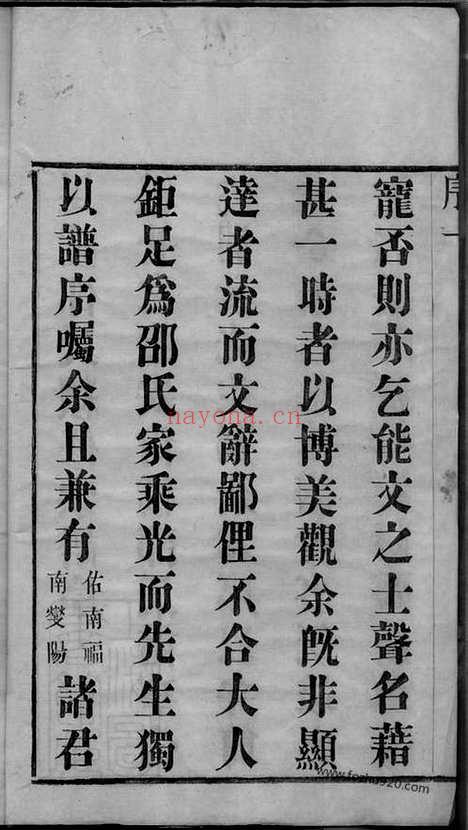 序一
寵否則亦乞能文之士聲名藉
甚一時者以博美觀余既非顯
達者流而文辭鄙俚不合大人
鉅足為邵氏家乘光而先生獨
以譜序囑余且兼有佑南福南燮陽諸君
hayona.cn
www.fozhu920.com